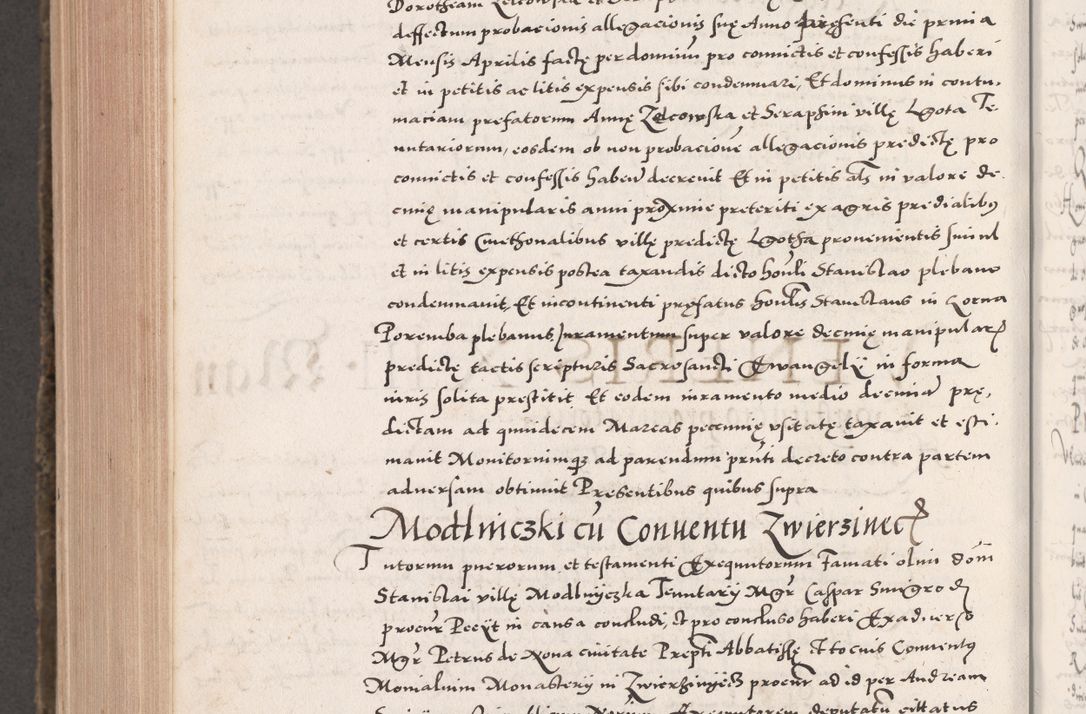 deffectum probacionis allegacionis suę Anno presenti die prima
Mensis Aprilis factę per dominum pro convictis et confessis haberi
et in petitis ac litis expensis sibi condemnari, Et dominus in contu,
maciam prefatorum Annę Zelcowska et Seraphini villę Lgota Te
nutariorum, eosdem ob non probacione allegacionis predictę pro
convictis et confessis haben decrevit Et in petitis als in valore de,
cmię manipularis anni proxime preteriti ex agris predialibus
et certis Cmethonalibus villę predictę Lgotha provenientis simul
et in litis expensis postea taxandis dicto honli Stanislao plebano
condemnavit, Et incontinenti prefatus honlis Stanislaus in Gorna
Poremba plebanus Juramentum super valore decmię manipularis
predictę tactis scripturis Sacrosancti Ewangely in forma
iuris solita prestitit Et eodem iuramento medio decmam prę,
dictam ad quindecem Marcas pecunię usitatę taxavit et esti,
mavit Monitoriumque ad parendum pnti decreto contra partem
adversam obtinuit Presentibus quibus supra
Modlniczki cu Conventu Zwierzinec
Tutorum puerorum et testamenti Exequutorum Famati olim dom
Stanislai villę Modlnyczka Tenutary Mgr Caspar Smigrod
procur Peeyt in causa concludi, et pro concluso haberi Ex adverso
Mgr Petrus de Nova civitate Prepti Abbatissę Ttocius Conventus
Monialium Monastery in Zwierzinyecz procur ad id per Andream